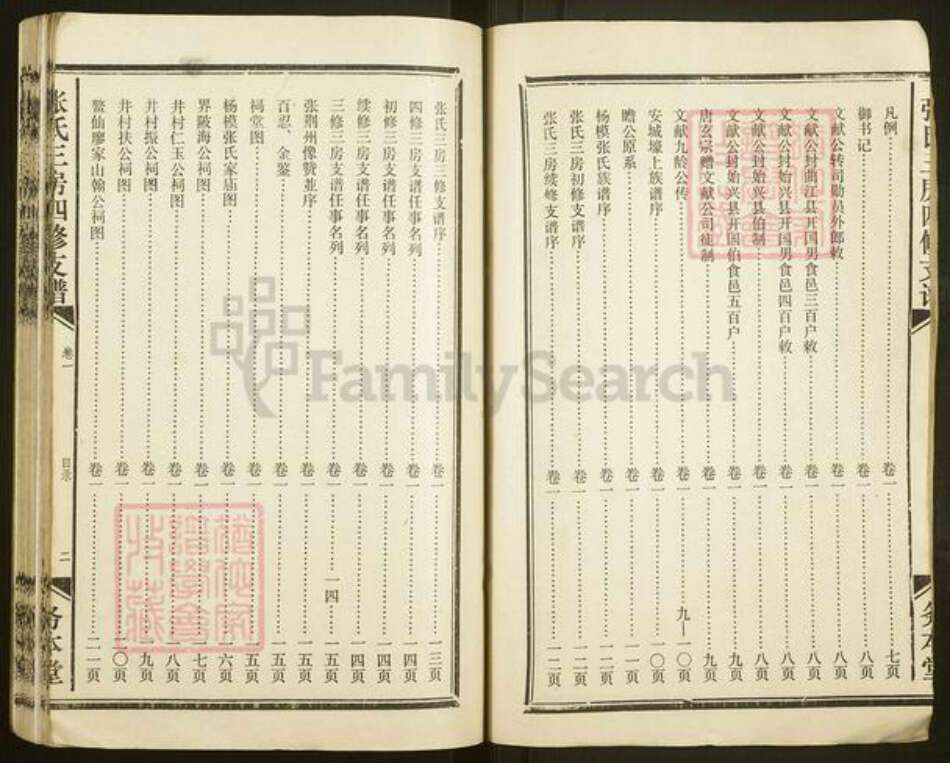 张氏三房四修支谱
凡例 卷一 七页
御书记 卷一 八页
文献公转司勋员外郎敕 卷一 八页
文献公封曲江县开国男食邑三百户敕 卷一 八页
文献公封始兴县开国男食邑四百户敕 卷一 八页
文献公封始兴县伯制 卷一 八页
文献公封始兴县开国伯食邑五百户 卷一 九页
唐玄宗赠文献公司徒制 卷一 九页
文献九龄公传 卷一 九—一〇页
安城壕上族谱序 卷一 一〇页
瞻公原系 卷一 一一页
杨模张氏族谱序 卷一 一二页
张氏三房初修支谱序 卷一 一二页
张氏三房续修支谱序 卷一 一二页
务本堂
张氏三房三修支谱序 卷一 一三页
四修三房支谱任事名列 卷一 一四页
初修三房支谱任事名列 卷一 一四页
续修三房支谱任事名列 卷一 一四页
三修三房支谱任事名列 卷一 一四 一五页
张荆州像赞並序 卷一 一五页
百忍、金鉴 卷一 一五页
祠堂图 卷一 一五页
杨模张氏家庙图 卷一 一六页
界陂海公祠图 卷一 一七页
井村仁玉公祠图 卷一 一八页
井村振公祠图 卷一 一九页
井村扶公祠图 卷一 二〇页
鳌仙廖家山翰公祠图 卷一 二一页
张氏三房四修支谱
卷一
目录
二
务本堂
FamilySearch